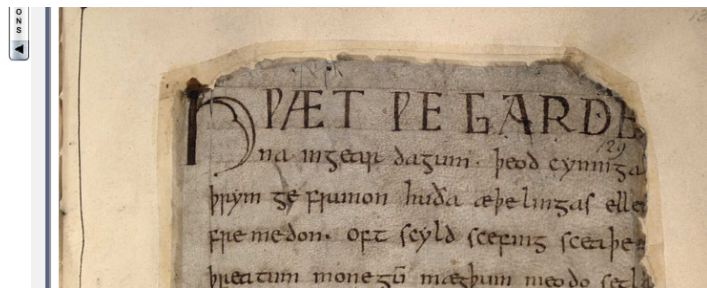 ONS
13
HǷÆT ǷE GARDE
129
na ingear dagum· þeod cyninga
þrym ge frunon huða æþelingas elle
fremedon· oft scyld scefing sceaþe
þreatum monegū mægþum meodo setla